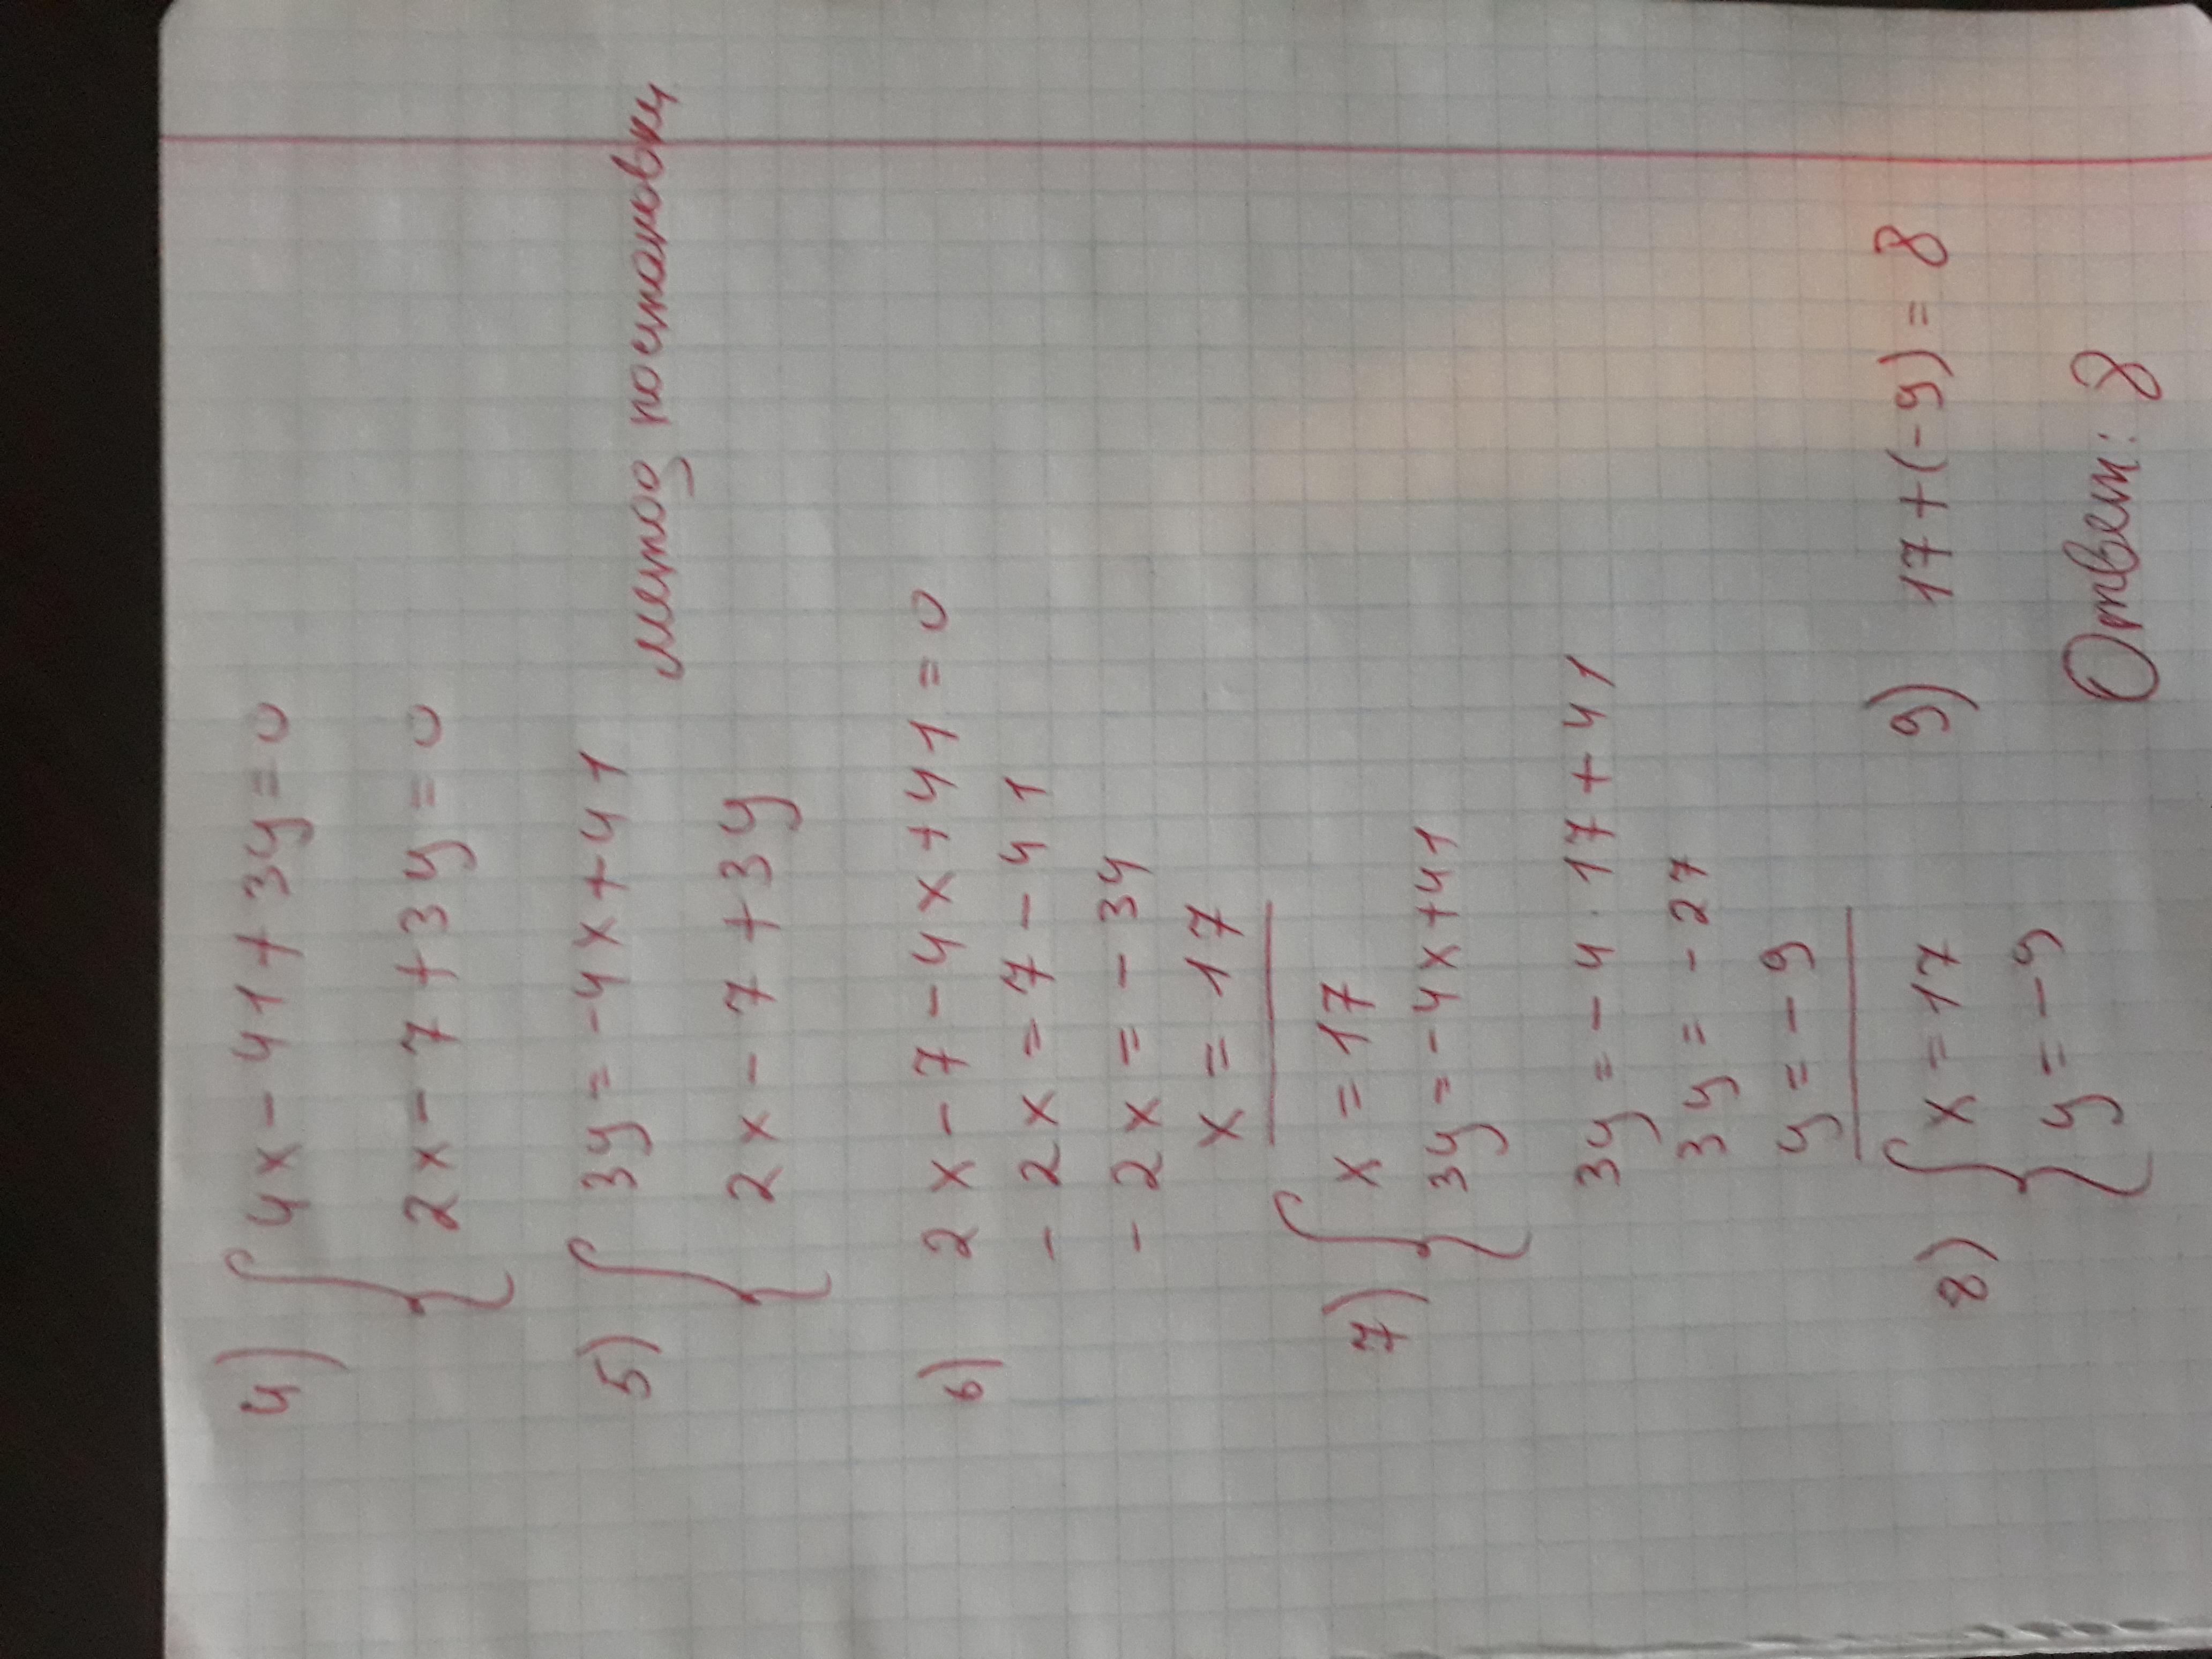 4) { 4x - 41 + 3y = 0
2x - 7 + 3y = 0
5) { 3y = -4x + 41
метод постановки
2x - 7 + 3y
6) 2x - 7 - 4x + 41 = 0
- 2x = 7 - 41
- 2x = - 34
x = 17
7) { x = 17
3y = -4x + 41
3y = - 4 · 17 + 41
3y = - 27
y = - 9
8) { x = 17
y = - 9
9) 17 + (-9) = 8
Ответ: 8